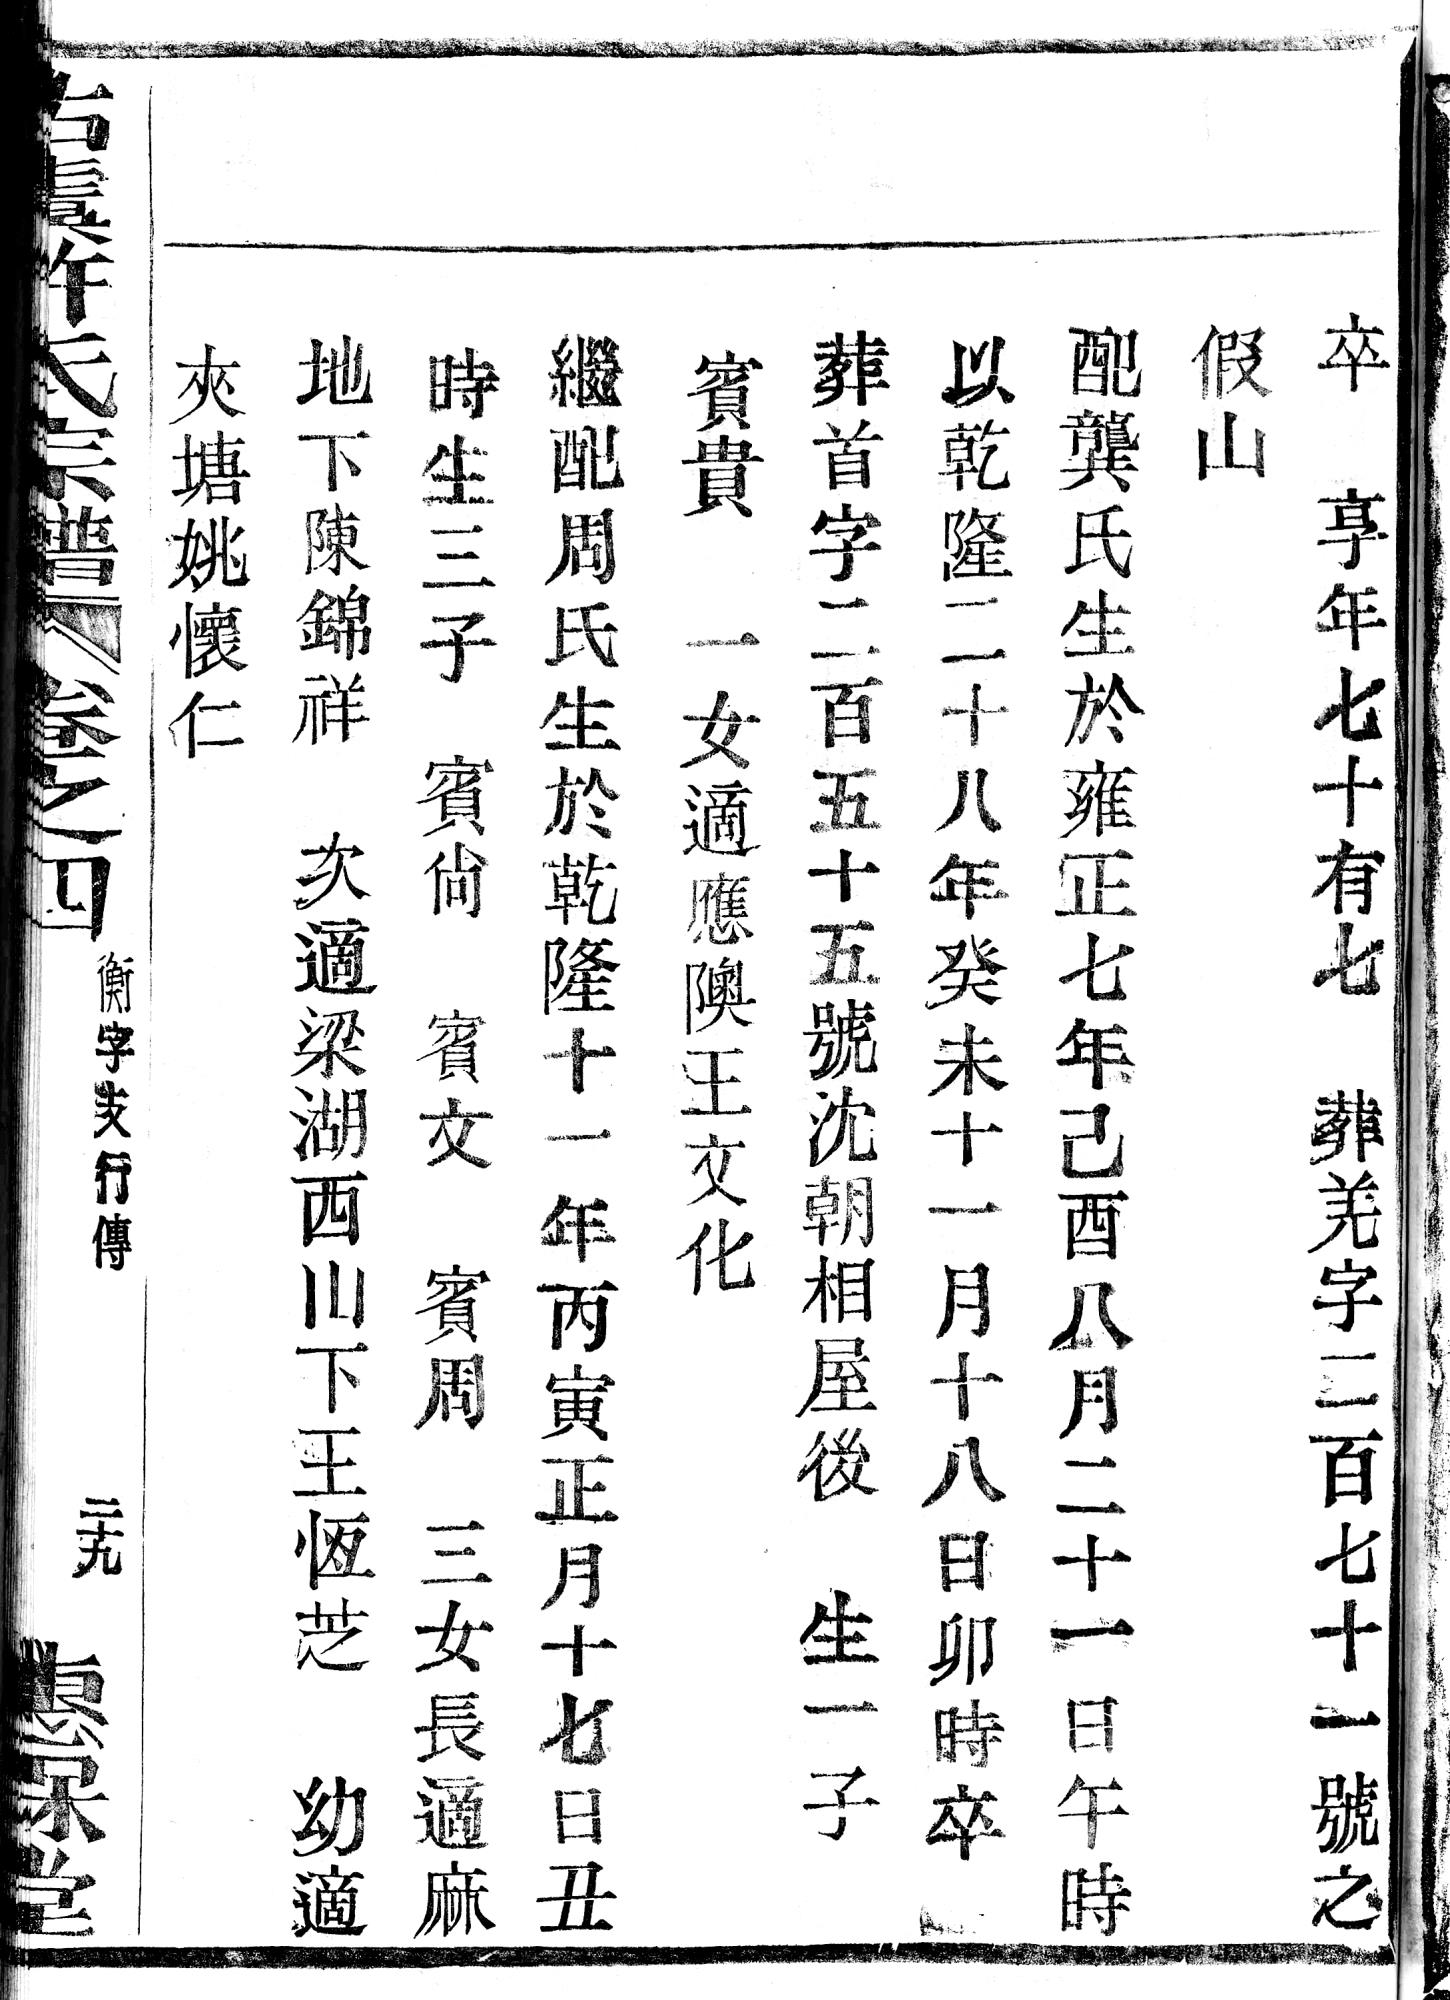 卒　享年七十有七　葬羌字二百七十一號之
假山
配龔氏生於雍正七年己酉八月二十一日午時
以乾隆二十八年癸未十一月十八日卯時卒
葬首字二百五十五號沈朝相屋後　生一子
賓貴　一女適應隩王文化
繼配周氏生於乾隆十一年丙寅正月十七日丑
時生三子　賓尙　賓文　賓周　三女長適麻
地下陳錦祥　次適梁湖西山下王恆芝　幼適
夾塘姚懷仁
古虞許氏宗譜　卷之四
衡字支行傳
二十九